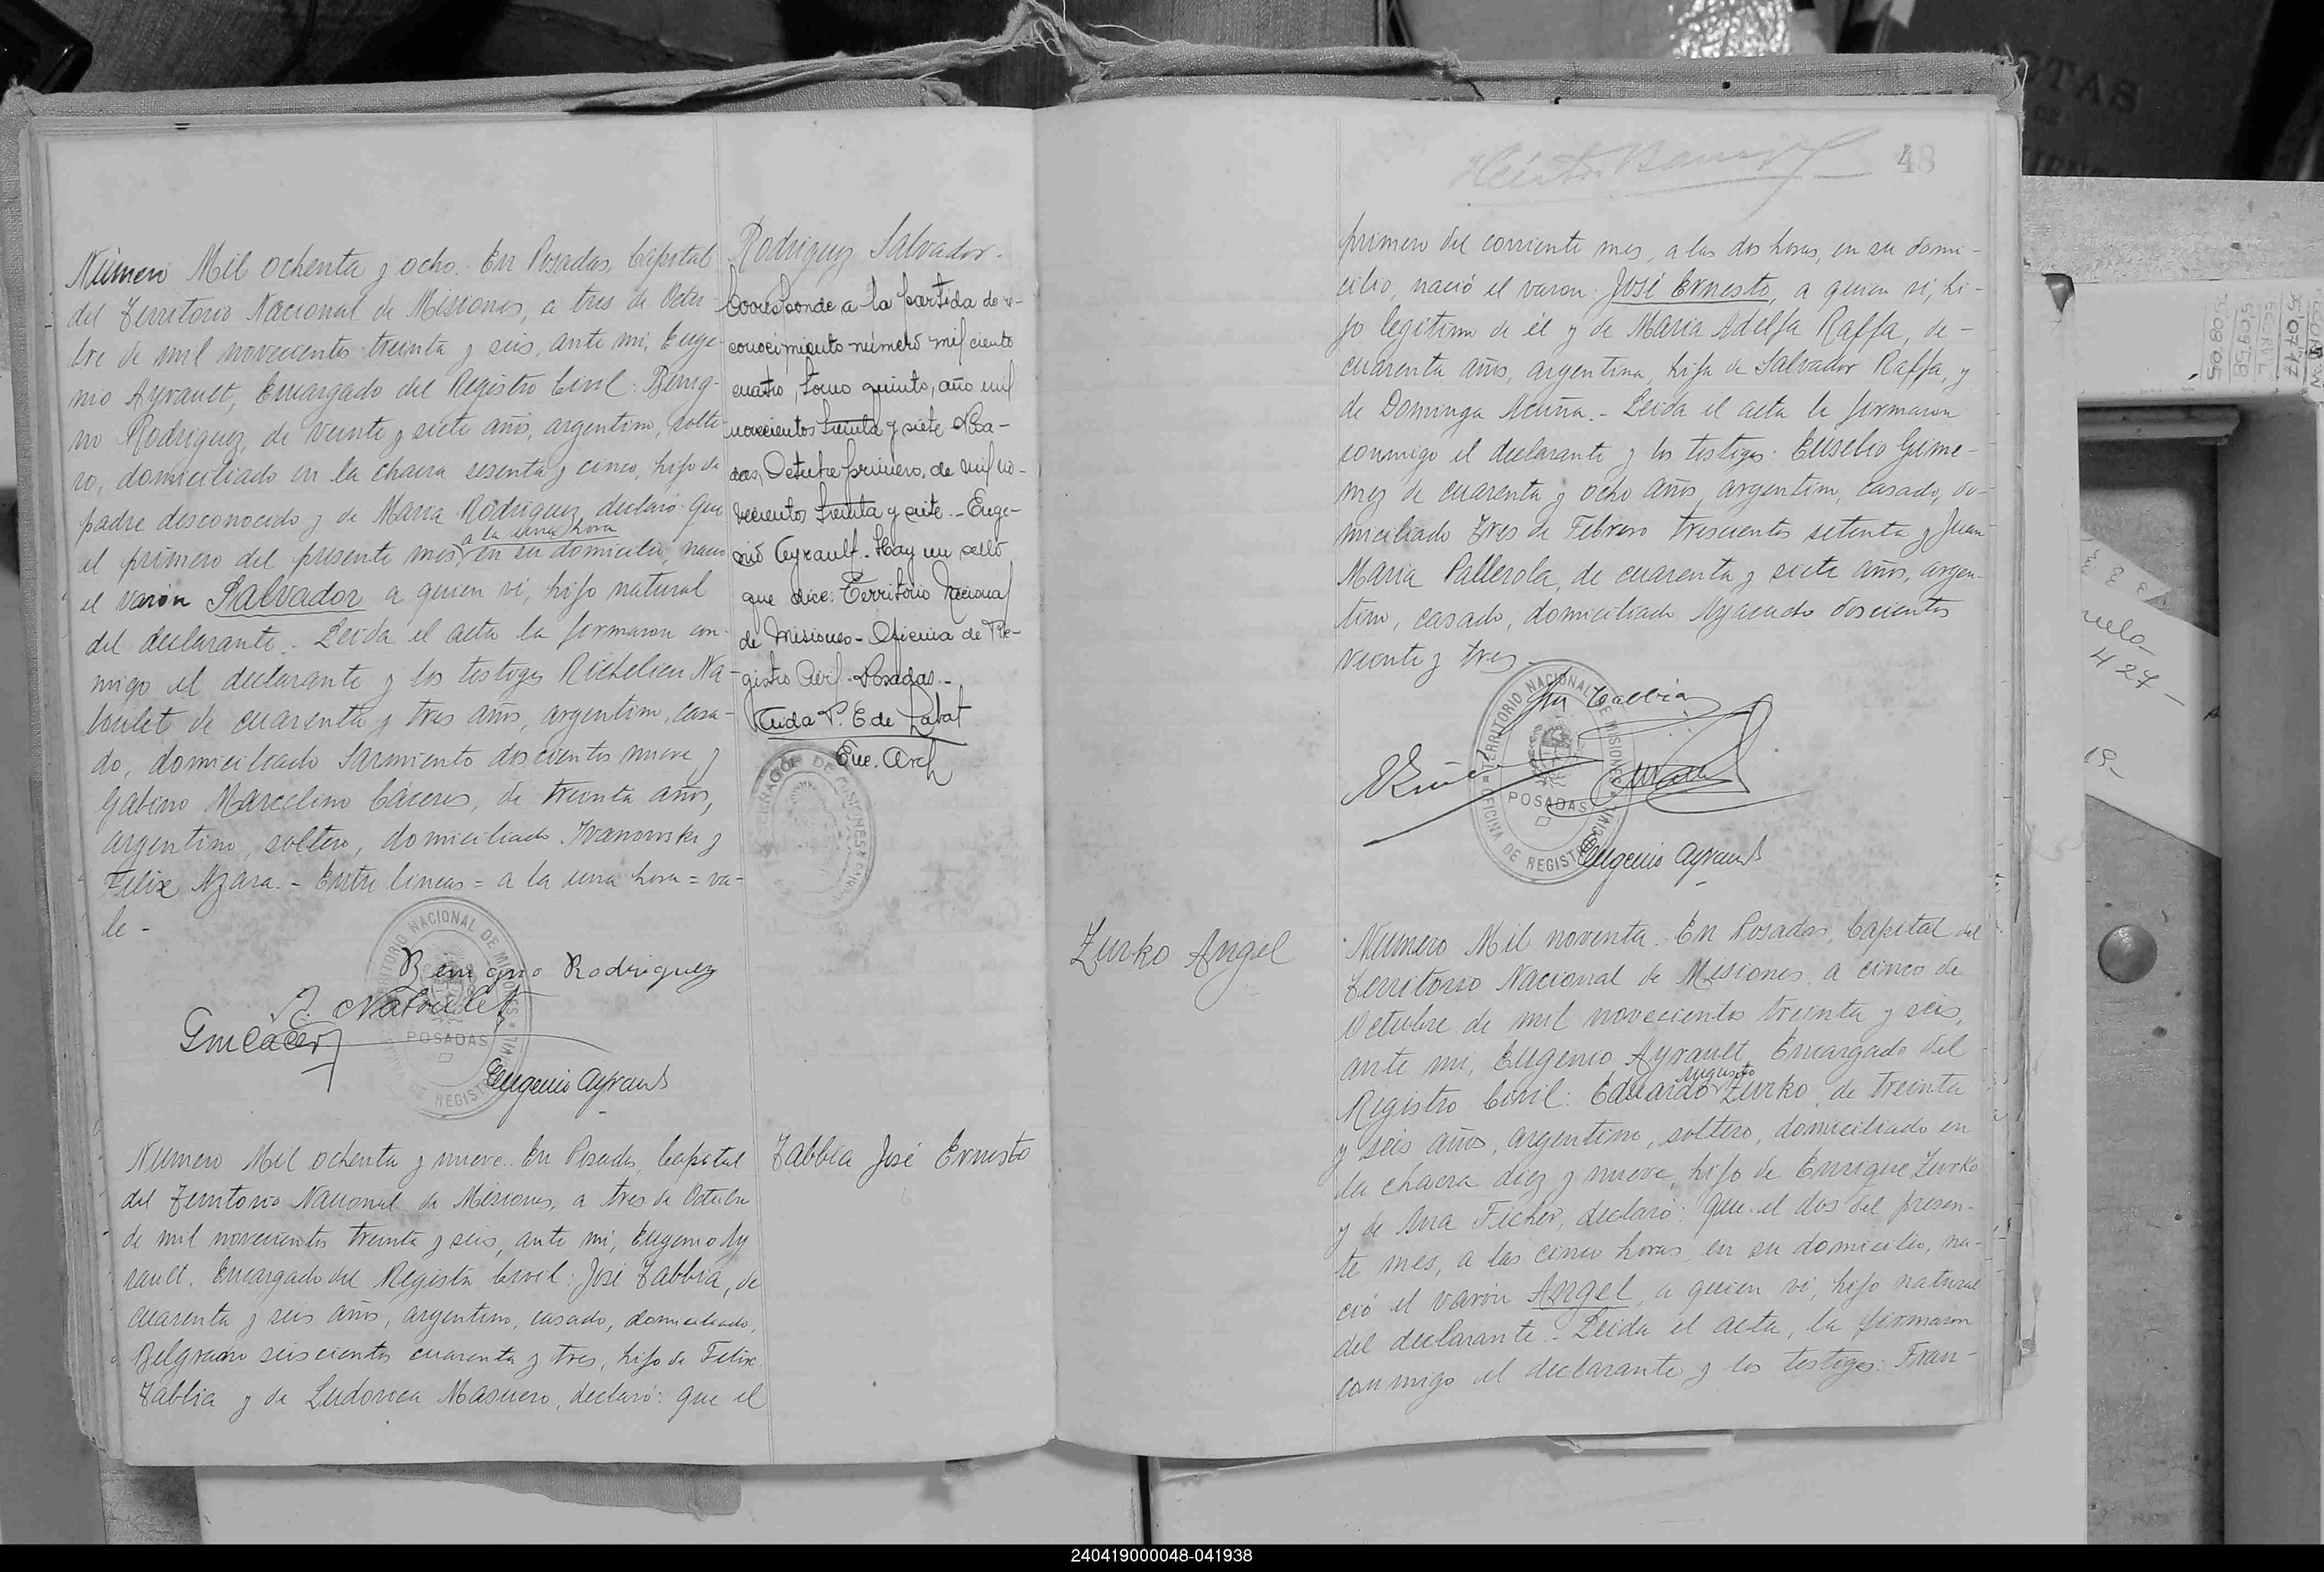 Número Mil ochenta y ocho.- En Posadas, Capital
del Territorio Nacional de Misiones, a tres de Octu-
bre de mil novecientos treinta y seis, ante mi, Euge-
nio Ayrault, Encargado del Registro Civil: Benig-
no Rodriguez, de veinte y siete años, argentino, solte-
ro, domiciliado en la chacra sesenta y cinco, hijo de
padre desconocido y de Maria Rodriguez, declaró: que
a la una hora
el primero del presente mes, en su domicilio, nació
el varón Salvador a quien vi, hijo natural
del declarante.- Leida el acta la firmaron con-
migo el declarante y los testigos Richelieu Na-
boulet de cuarenta y tres años, argentino, casa-
do, domiciliado Sarmiento doscientos nueve y
Gabino Marcelino Cáceres, de treinta años,
argentino, soltero, domiciliado Ivanowski y
Felix Azara.- Entre lineas = a la una hora = va-
le -
Benigno Rodriguez
R. Naboulet
GmCacer
Eugenio Ayrault
TERRITORIO NACIONAL DE MISIONES
OFICINA DE REGISTRO CIVIL
POSADAS
Rodriguez Salvador.
Corresponde a la partida de re-
conocimiento número mil ciento
cuatro, tomo quinto, año mil
novecientos treinta y siete. Posa-
das, Octubre primero, de mil no-
vecientos treinta y siete.- Euge-
nio Ayrault.- Hay un sello
que dice: Territorio Nacional
de Misiones - Oficina de Re-
gistro Civil - Posadas.-
P. E de Labat
Enc. Arch
Número Mil ochenta y nueve.- En Posadas, Capital
del Territorio Nacional de Misiones, a tres de Octubre
de mil novecientos treinta y seis, ante mi, Eugenio Ay
rault, Encargado del Registro Civil: José Zabbia, de
cuarenta y seis años, argentino, casado, domiciliado,
Belgrano seiscientos cuarenta y tres, hijo de Felix
Zabbia y de Ludovica Masuero, declaró: que el
Zabbia José Ernesto
48
primero del corriente mes, a las dos horas, en su domi-
cilio, nació el varon: José Ernesto, a quien vi, hi-
jo legitimo de él y de Maria Adelfa Raffa, de-
cuarenta años, argentina, hija de Salvador Raffa, y
de Dominga Acuña.- Leida el acta la firmaron
conmigo el declarante y los testigos: Eusebio Gime-
nez de cuarenta y ocho años, argentino, casado, do-
miciliado Tres de Febrero trescientos setenta y Juan
Maria Pallerola, de cuarenta y siete años, argen-
tino, casado, domiciliado Ayacucho doscientos
veinte y tres.
TERRITORIO NACIONAL DE MISIONES
OFICINA DE REGISTRO CIVIL
POSADAS
Eugenio Ayrault
Zurko Angel
Número Mil noventa.- En Posadas, Capital del
Territorio Nacional de Misiones, a cinco de
Octubre de mil novecientos treinta y seis,
ante mi, Eugenio Ayrault, Encargado del
Augusto
Registro Civil: Eduardo Zurko, de treinta
y seis años, argentino, soltero, domiciliado en
la chacra diez y nueve, hijo de Enrique Zurko
y de Ana Ficher, declaró: que el dos del presen-
te mes, a las cinco horas, en su domicilio, na-
ció el varón Angel, a quien vi, hijo natural
del declarante.- Leida el acta, la firmaron
conmigo el declarante y los testigos: Fran-
427
240419000048-041938